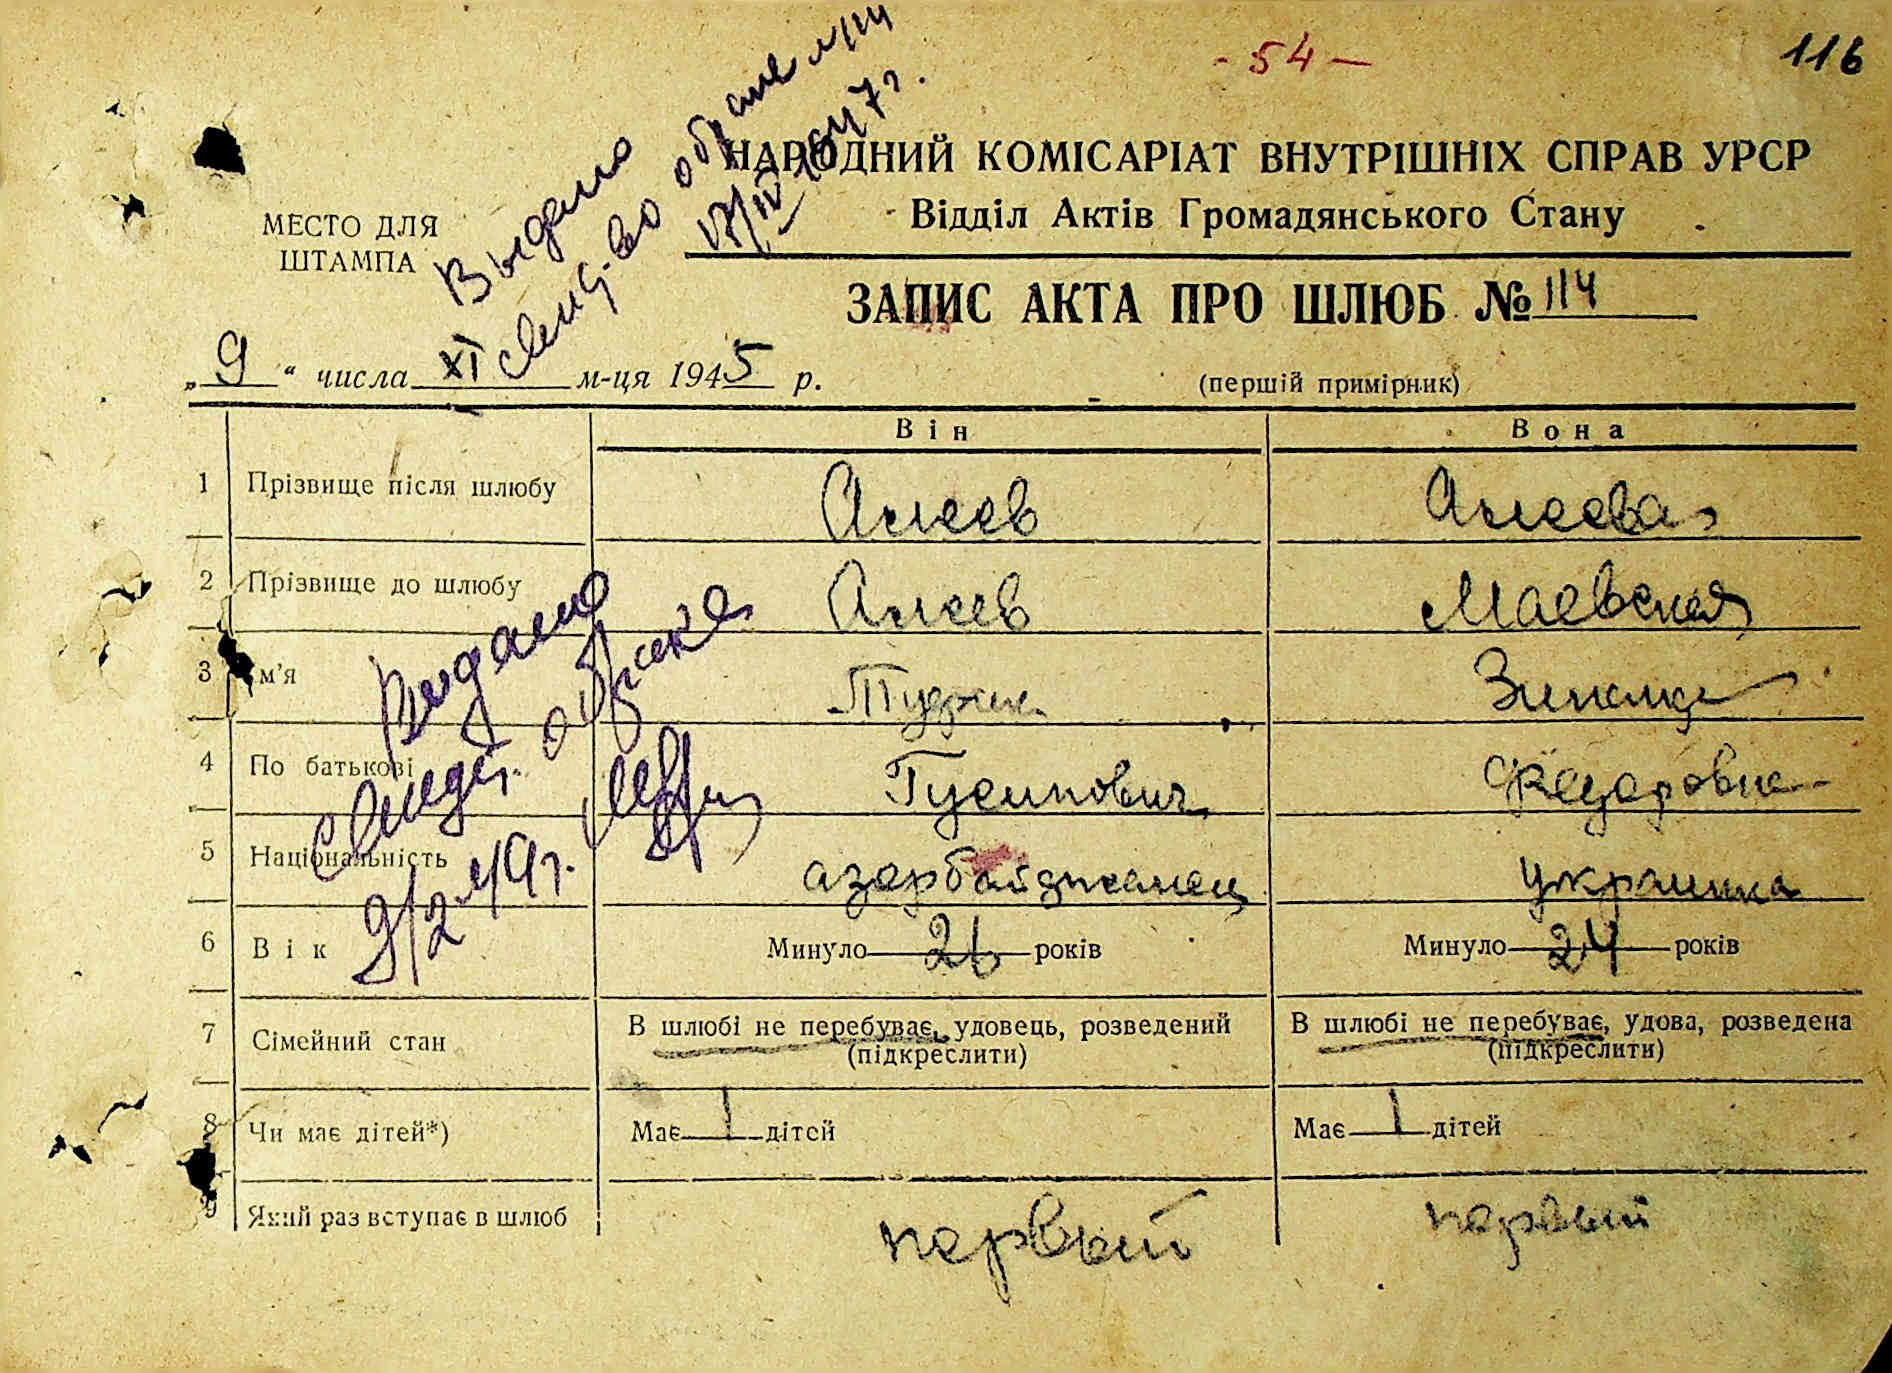 - 54 -
116
НАРОДНИЙ КОМІСАРІАТ ВНУТРІШНІХ СПРАВ УРСР
Відділ Актів Громадянського Стану
МЕСТО ДЛЯ
ШТАМПА
Выдано
свид-во о браке
17/IV 1947г.
ЗАПИС АКТА ПРО ШЛЮБ № 114
„ 9 “ числа XI м-ця 1945 р.
(перший примірник)
Він Вона
1 Прізвище після шлюбу Алиев Алиева
2 Прізвище до шлюбу Алиев Маевская
3 м’я Зинаида
4 По батькові Гусейнович Федоровна
5 Національність азарбайджанец украинка
6 Вік Минуло 26 років Минуло 24 років
7 Сімейний стан В шлюбі не перебуває, удовець, розведений (підкреслити) В шлюбі не перебуває, удова, розведена (підкреслити)
8 Чи має дітей*) Має 1 дітей Має 1 дітей
9 Який раз вступає в шлюб первый первый
Выдано
свидет. о браке
9/2 49г.